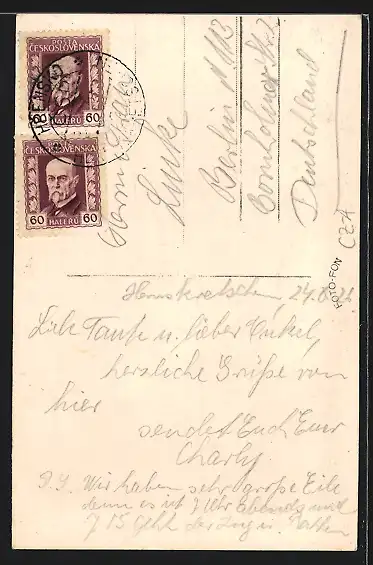 POSTA
ČESKOSLOVENSKA
60
HALÉŘŮ
ČESKOSLOVENSKA
60 60
HALÉŘŮ
Linke
Berlin N 113
Deutschland
CZ-A
FOTO-FON
Herrnskretschen,
Liebe Tante u. lieber Onkel,
herzliche Grüße von
hier
sendet Euch Euer
Charly.
P.S. Wir haben sehr große Eile
denn es ist 7 Uhr abends und
7 15 geht der Zug